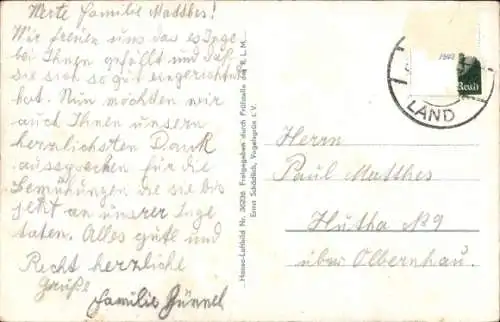 Werte Familie Matthes!
Wir freuen uns das es Inge
bei Ihnen gefällt und daß
sie sich so gut eingerichtet
hat. Nun möchten wir
auch Ihnen unsern
herzlichsten Dank
aussprechen für die
Bemühungen die sie bis
jetzt an unserer Inge
taten. Alles gute und
Recht herzliche
Grüße
Familie
Hansa-Luftbild Nr. 30236 Freigegeben durch Prüfstelle des R. L. M.
Ernst Schädlich, Vogelsgrün i. V.
LAND
Herrn
Paul Matthes
Hütha No 9
über Olbernhau.